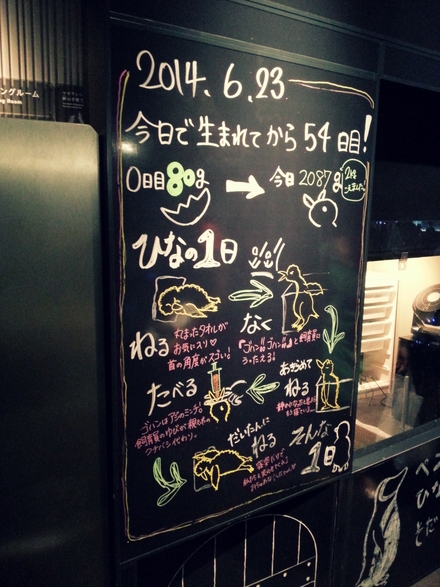 2014.6.23
今日で生まれてから54日目!
0日目80g → 今日2087g
ひなの1日
ねる
丸まったタオルが
お気に入り♡
首の角度がスゴい!
なく
「ゴハン!!ゴハン!!」と飼育員に
うったえる!
あきらめて
ねる
たべる
ゴハンはアジのミンチ。
飼育員のゆびが親鳥の
クチバシ代わり。
だいたんに
ねる
そんな
1日
ングルーム
ng Room
ペン
ひな